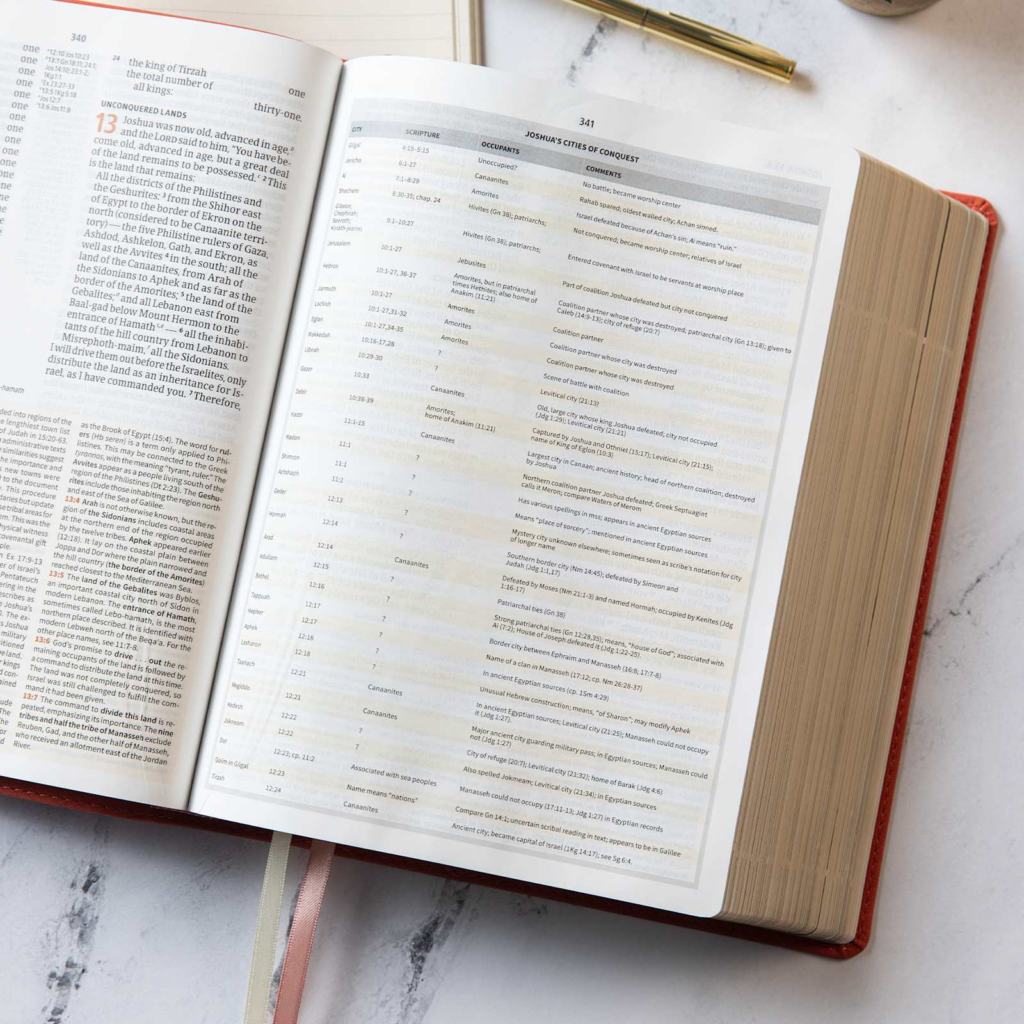 340
one
one
one
one
one
one
one
one
one
one
24 the king of Tirzah one
the total number of
all kings: thirty-one.
UNCONQUERED LANDS
13 Joshua was now old, advanced in age,
and the LORD said to him, "You have be-
come old, advanced in age, but a great deal
of the land remains to be possessed. 2 This
is the land that remains:
All the districts of the Philistines and
the Geshurites: 3 from the Shihor east
of Egypt to the border of Ekron on the
north (considered to be Canaanite terri-
tory) — the five Philistine rulers of Gaza,
Ashdod, Ashkelon, Gath, and Ekron, as
well as the Avvites 4 in the south; all the
land of the Canaanites, from Arah of
the Sidonians to Aphek and as far as the
border of the Amorites; 5 the land of the
Gebalites; and all Lebanon east from
Baal-gad below Mount Hermon to the
entrance of Hamath — 6 all the inhabi-
tants of the hill country from Lebanon to
Misrephoth-maim, all the Sidonians.
I will drive them out before the Israelites, only
distribute the land as an inheritance for Is-
rael, as I have commanded you. 7 Therefore,
as the Brook of Egypt (15:4). The word for rul-
ers (Hb seren) is a term only applied to Phi-
listines. This may be connected to the Greek
tyrannos, with the meaning "tyrant, ruler." The
Avvites appear as a people living south of the
region of the Philistines (Dt 2:23). The Geshu-
rites include those inhabiting the region north
and east of the Sea of Galilee.
13:4 Arah is not otherwise known, but the re-
gion of the Sidonians includes coastal areas
at the northern end of the region occupied
by the twelve tribes. Aphek appeared earlier
(12:18). It lay on the coastal plain between
Joppa and Dor where the plain narrowed and
the hill country (the border of the Amorites)
reached closest to the Mediterranean Sea.
13:5 The land of the Gebalites was Byblos,
an important coastal city north of Sidon in
modern Lebanon. The entrance of Hamath,
sometimes called Lebo-hamath, is the most
northern place described. It is identified with
modern Lebweh north of the Beqa'a. For the
other place names, see 11:7-8.
13:6 God's promise to drive . . . out the re-
maining occupants of the land is followed by
a command to distribute the land at this time.
The land was not completely conquered, so
Israel was still challenged to fulfill the com-
mand it had been given.
13:7 The command to divide this land is re-
peated, emphasizing its importance. The nine
tribes and half the tribe of Manasseh exclude
Reuben, Gad, and the other half of Manasseh,
who received an allotment east of the Jordan
River.
341
JOSHUA'S CITIES OF CONQUEST
CITY SCRIPTURE OCCUPANTS COMMENTS
Gilgal 4:15–5:15 Unoccupied? No battle; became worship center
Jericho 6:1-27 Canaanites Rahab spared; oldest walled city; Achan sinned.
Ai 7:1–8:29 Amorites Israel defeated because of Achan's sin; Ai means "ruin."
Shechem 8:30-35; chap. 24 Hivites (Gn 38); patriarchs; Not conquered; became worship center; relatives of Israel
Gibeon, Chephirah; Beeroth; Kiriath-jearim 9:1–10:27 Hivites (Gn 38), patriarchs; Entered covenant with Israel to be servants at worship place
Jerusalem 10:1-27 Jebusites Part of coalition Joshua defeated but city not conquered
Hebron 10:1-27, 36-37 Amorites, but in patriarchal
times Hethites; also home of
Anakim (11:21) Coalition partner whose city was destroyed; patriarchal city (Gn 13:18); given to
Caleb (14:9-13); city of refuge (20:7)
Jarmuth 10:1-27 Amorites Coalition partner
Lachish 10:1-27,31-32 Amorites Coalition partner whose city was destroyed
Eglon 10:1-27,34-35 Amorites Coalition partner whose city was destroyed
Makkedah 10:16-17,28 ? Scene of battle with coalition
Libnah 10:29-30 ? Levitical city (21:13)
Gezer 10:33 Canaanites Old, large city whose king Joshua defeated, city not occupied
(Jdg 1:29); Levitical city (21:21)
Debir 10:38-39 Amorites;
home of Anakim (11:21) Captured by Joshua and Othniel (15:17); Levitical city (21:15);
name of King of Eglon (10:3)
Hazor 11:1-15 Canaanites Largest city in Canaan; ancient history; head of northern coalition; destroyed
by Joshua
Madon 11:1 ? Northern coalition partner Joshua defeated; Greek Septuagint
calls it Meron; compare Waters of Merom
Shimron 11:1 ? Has various spellings in mss; appears in ancient Egyptian sources
Achshaph 11:1 ? Means "place of sorcery"; mentioned in ancient Egyptian sources
Geder 12:13 ? Mystery city unknown elsewhere; sometimes seen as scribe's notation for city
of longer name
Hormah 12:14 Southern border city (Nm 14:45); defeated by Simeon and
Judah (Jdg 1:1,17)
Arad 12:14 Canaanites Defeated by Moses (Nm 21:1-3) and named Hormah; occupied by Kenites (Jdg
1:16-17)
Adullam 12:15 ? Patriarchal ties (Gn 38)
Bethel 12:16 ? Strong patriarchal ties (Gn 12:28,35); means, "house of God"; associated with
Ai (7:2); House of Joseph defeated it (Jdg 1:22-25).
Tappuah 12:17 ? Border city between Ephraim and Manasseh (16:8; 17:7-8)
Hepher 12:17 ? Name of a clan in Manasseh (17:12; cp. Nm 26:28-37)
Aphek 12:18 ? In ancient Egyptian sources (cp. 1Sm 4:29)
Lasharon 12:18 ? Unusual Hebrew construction; means, "of Sharon"; may modify Aphek
Taanach 12:21 Canaanites In ancient Egyptian sources; Levitical city (21:25); Manasseh could not occupy
it (Jdg 1:27).
Megiddo 12:21 Canaanites Major ancient city guarding military pass; in Egyptian sources; Manasseh could
not (Jdg 1:27)
Kedesh 12:22 ? City of refuge (20:7); Levitical city (21:32); home of Barak (Jdg 4:6)
Jokneam 12:22 ? Also spelled Jokmeam; Levitical city (21:34); in Egyptian sources
Dor 12:23; cp. 11:2 Associated with sea peoples Manasseh could not occupy (17:11-13; Jdg 1:27); in Egyptian records
Goiim in Gilgal 12:23 Name means "nations" Compare Gn 14:1; uncertain scribal reading in text; appears to be in Galilee
Tirzah 12:24 Canaanites Ancient city; became capital of Israel (1Kg 14:17); see Sg 6:4.